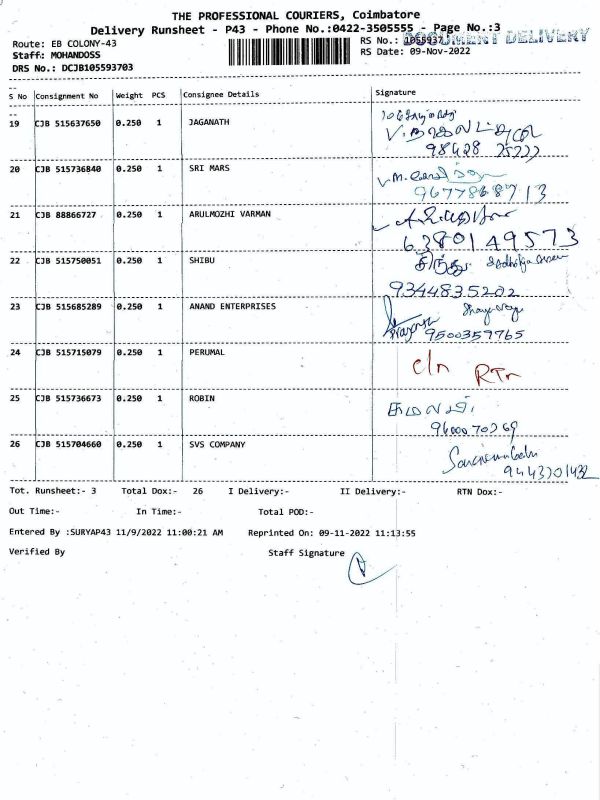 THE PROFESSIONAL COURIERS, Coimbatore
Delivery Runsheet - P43 - Phone No.:0422-3505555 - Page No.:3
DOCUMENT DELIVERY
Route: EB COLONY-43
RS No.: 1055937
Staff: MOHANDOSS
RS Date: 09-Nov-2022
DRS No.: DCJB105593703
S No Consignment No Weight PCS Consignee Details Signature
19 CJB 515637650 0.250 1 JAGANATH
98428
20 CJB 515736840 0.250 1 SRI MARS
9677868713
21 CJB 88866727 0.250 1 ARULMOZHI VARMAN
6380149573
22 CJB 515750051 0.250 1 SHIBU சிந்து
9344835202
23 CJB 515685289 0.250 1 ANAND ENTERPRISES
9500359765
24 CJB 515715079 0.250 1 PERUMAL C/n RTn
25 CJB 515736673 0.250 1 ROBIN
9600070269
26 CJB 515704660 0.250 1 SVS COMPANY
9443201432
Tot. Runsheet:- 3 Total Dox:- 26 I Delivery:- II Delivery:- RTN Dox:-
Out Time:- In Time:- Total POD:-
Entered By :SURYAP43 11/9/2022 11:00:21 AM Reprinted On: 09-11-2022 11:13:55
Verified By Staff Signature